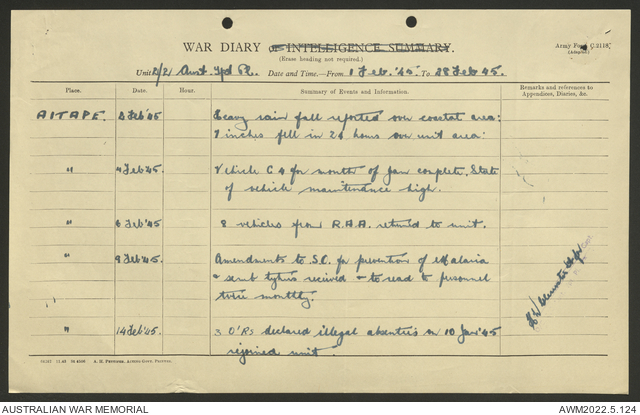 WAR DIARY or INTELLIGENCE SUMMARY.
Army Form C.2118.
(Erase heading not required.)
(Adapted)
Unit 2/21 Aust Fd Pk. Date and Time—From 1 Feb. '45. To 28 Feb '45.
Place. Date. Hour. Summary of Events and Information. Remarks and references to Appendices, Diaries, &c.
AITAPE. 2 Feb '45 Heavy rain fall reported over coastal area:
9 inches fell in 24 hours over unit area:
" 4 Feb '45. Vehicle C4 for month of Jan complete. State
of vehicle maintenance high.
" 6 Feb '45 2 vehicles from R.A.A. returned to unit.
" 9 Feb '45. Amendments to S.O. for prevention of Malaria
& scrub typhus received & to read to personnel
twice monthly.
" 14 Feb '45. 3 O'Rs declared illegal absentees on 10 Jan '45
rejoined unit.
A. H. Pettifer, Acting Govt. Printer.
AUSTRALIAN WAR MEMORIAL
AWM2022.5.124